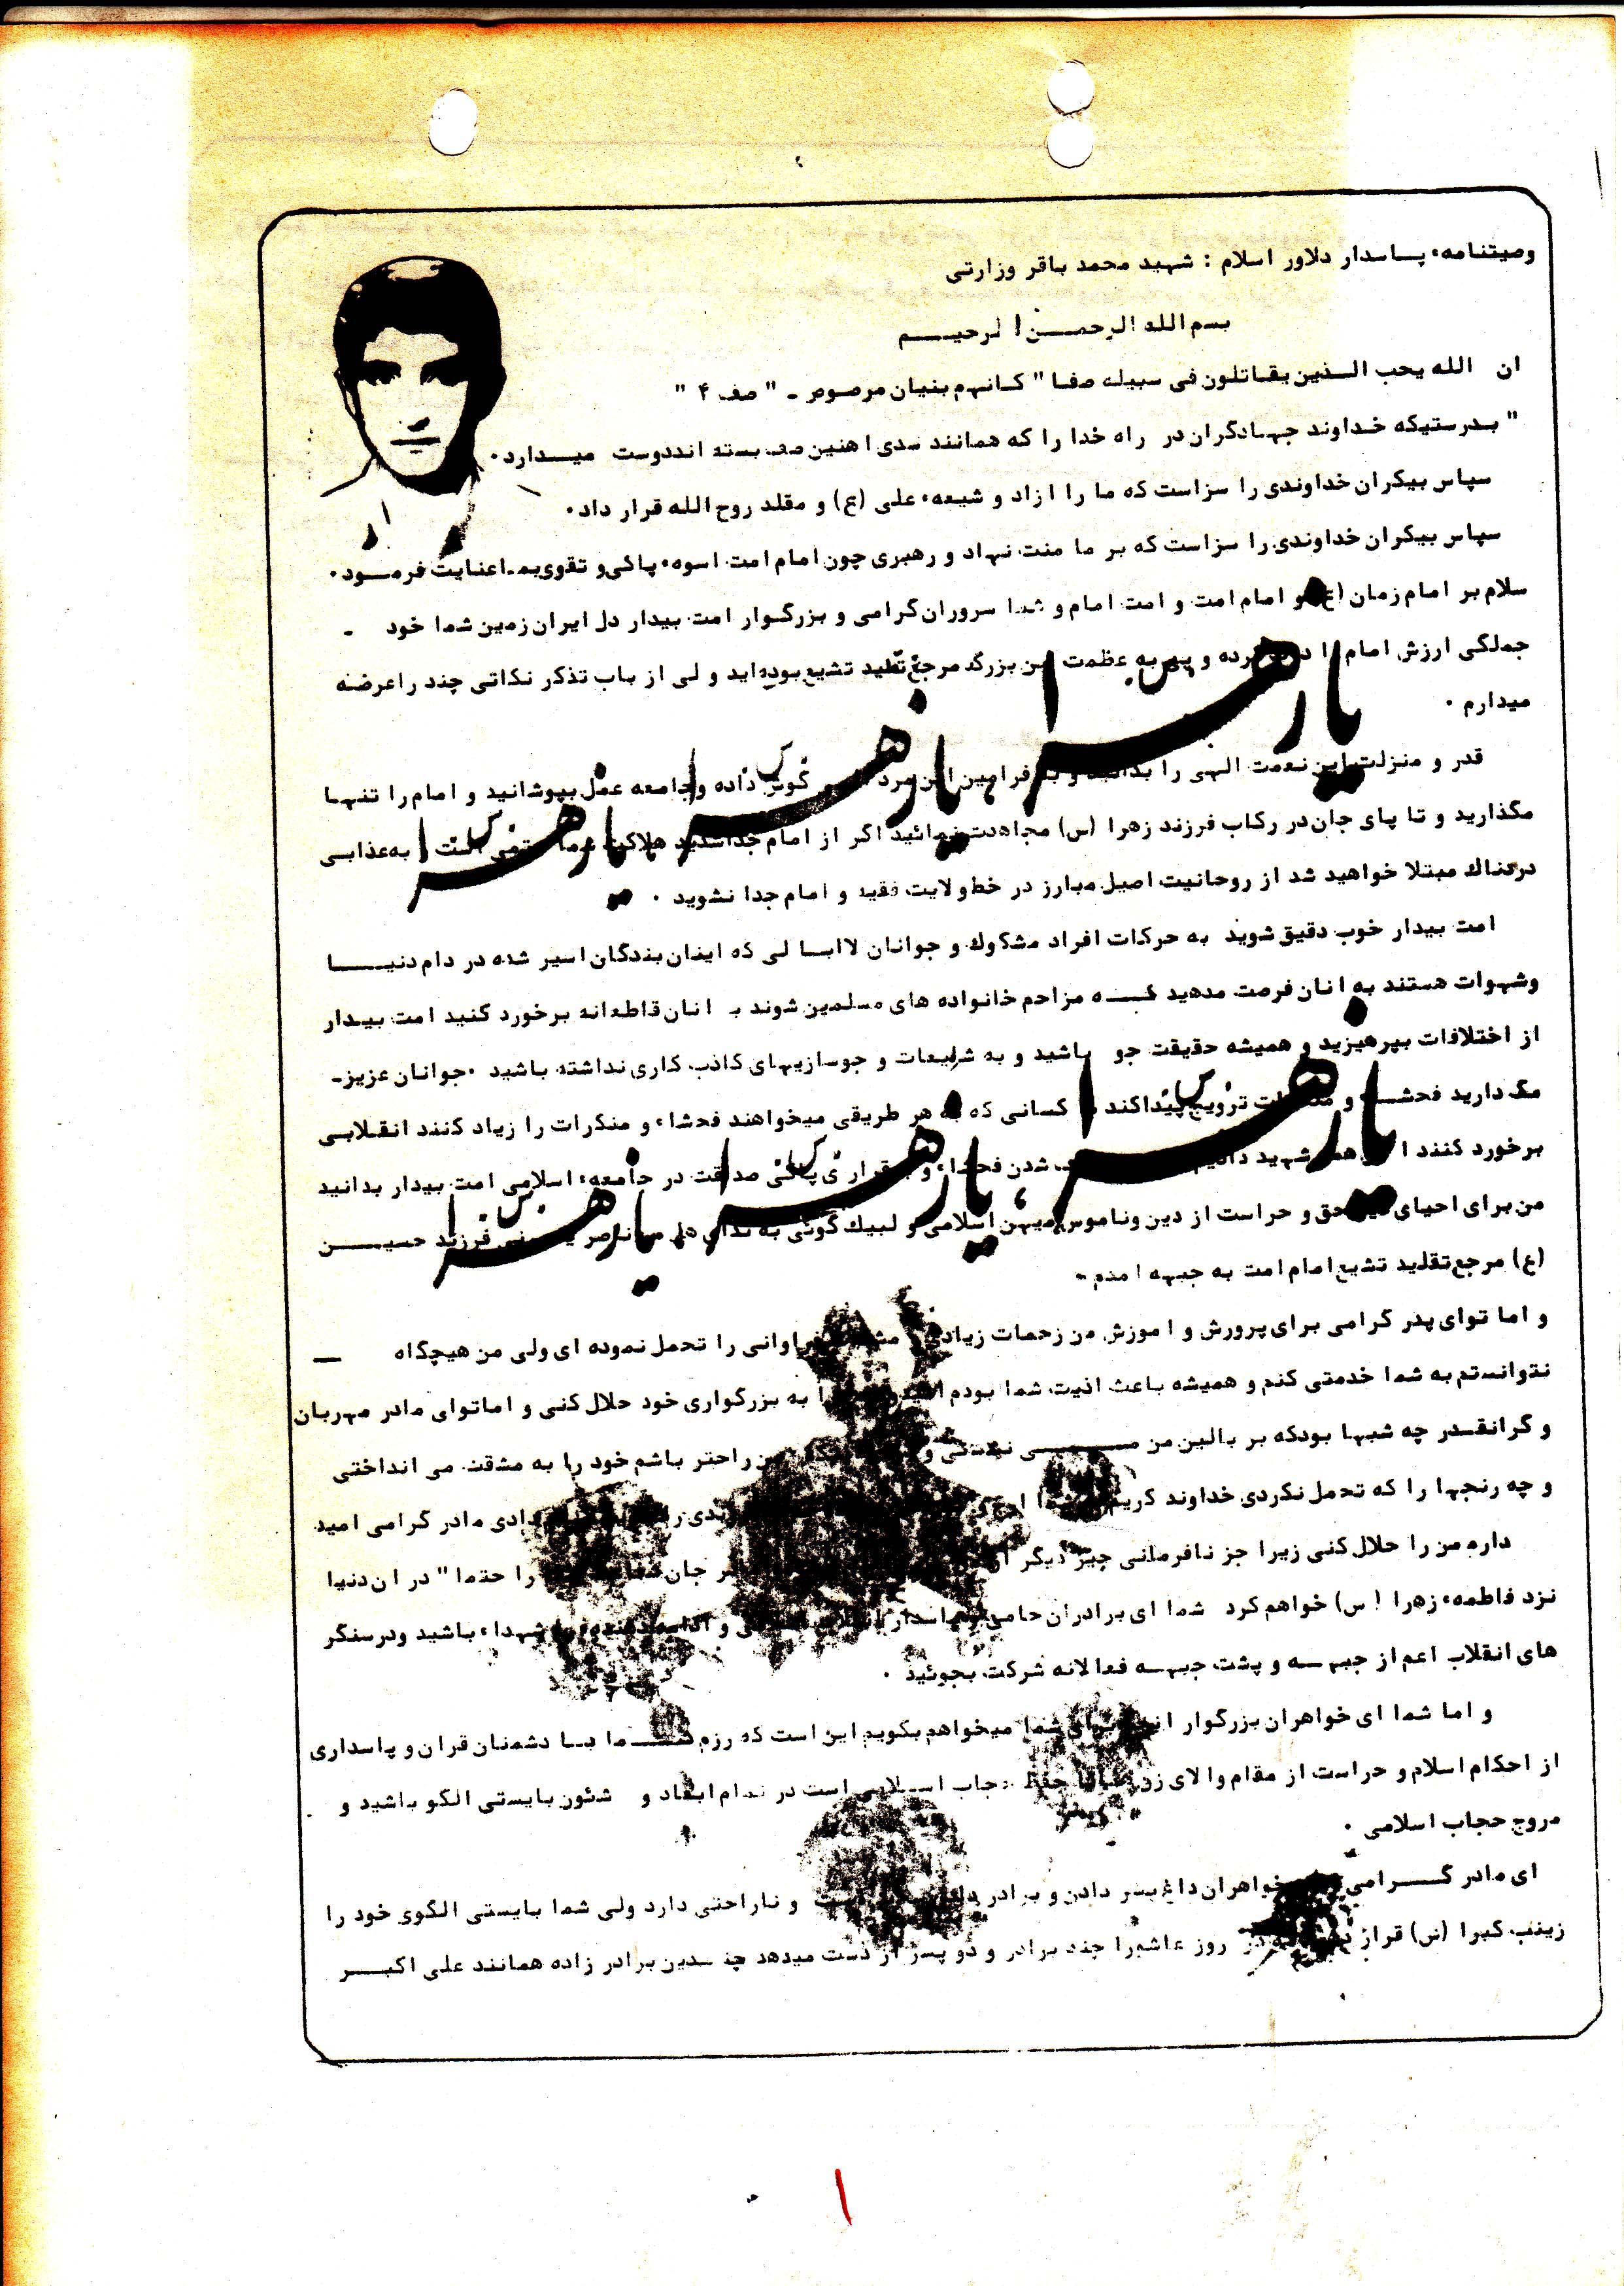 وصیتنامهٔ پاسدار دلاور اسلام : شهید محمد باقر وزارتی
بسم الله الرحمن الرحیم
ان الله یحب الذین یقاتلون فی سبیله صفا" کانهم بنیان مرصوص - " صف ۴ "
" بدرستیکه خداوند جهادگران در راه خدا را که همانند سدی اهنین صف بسته انددوست میدارد.
سپاس بیکران خداوندی را سزاست که ما را ازاد و شیعهٔ علی (ع) و مقلد روح الله قرار داد.
سپاس بیکران خداوندی را سزاست که بر ما منت نهاد و رهبری چون امام امت اسوهٔ پاکی و تقوی بما عنایت فرمود.
سلام بر امام زمان (ع) و امام امت و امت امام و شما سروران گرامی و بزرگوار امت بیدار دل ایران زمین شما خود -
جملگی ارزش امام را درک کرده و پی به عظمت این بزرگ مرجع تقلید تشیع بوده اید و لی از باب تذکر نکاتی چند را عرضه
میدارم .
قدر و منزلت این نعمت الهی را بدانید و به فرامین این مرد گوش داده و جامعه عمل بپوشانید و امام را تنها
مگذارید و تا پای جان در رکاب فرزند زهرا (س) مجاهدت نمائید اگر از امام جدا شدید هلاکت شما حتمی است و به عذابی
دردناک مبتلا خواهید شد از روحانیت اصیل مبارز در خط ولایت فقیه و امام جدا نشوید .
امت بیدار خوب دقیق شوید به حرکات افراد مشکوک و جوانان لاابا لی که اینان بندگان اسیر شده در دام دنیا
وشهوات هستند به انان فرصت مدهید که مزاحم خانواده های مسلمین شوند با انان قاطعانه برخورد کنید امت بیدار
از اختلافات بپرهیزید و همیشه حقیقت جو باشید و به شایعات و جوسازیهای کاذب کاری نداشته باشید .جوانان عزیز-
مگ دارید فحشا و منکرات ترویج پیداکند با کسانی که به هر طریقی میخواهند فحشاء و منکرات را زیاد کنند انقلابی
برخورد کنند شهید شدن فحشاء و برقراری پاکی صداقت در جامعهٔ اسلامی امت بیدار بدانید
من برای احیای دین حق و حراست از دین وناموس میهن اسلامی و لبیک گوئی به ندای هل من ناصر ینصرنی فرزند حسین
(ع) مرجع تقلید تشیع امام امت به جبهه امدم -
و اما توای پدر گرامی برای پرورش و اموزش من زحمات زیادی مشقات فراوانی را تحمل نموده ای ولی من هیچگاه —
نتوانستم به شما خدمتی کنم و همیشه باعث اذیت شما بودم امیدوارم مرا به بزرگواری خود حلال کنی و اماتوای مادر مهربان
و گرانقدر چه شبها بودکه بر بالین من می نشستی و من راحتر باشم خود را به مشقت می انداختی
و چه رنجها را که تحمل نکردی خداوند کریم به شما دادی مادر گرامی امید
دارم من را حلال کنی زیرا جز نافرمانی چیز دیگر جان را حتما" در ان دنیا
نزد فاطمهٔ زهرا (س) خواهم کرد شما ای برادران حامی و پاسدار انقلاب اسلامی و ادامه دهندهٔ راه شهداء باشید ودرسنگر
های انقلاب اعم از جبهه و پشت جبهه فعالانه شرکت بجوئید .
و اما شما ای خواهران بزرگوار انچه برای شما میخواهم بگویم این است که رزم شما با دشمنان قران و پاسداری
از احکام اسلام و حراست از مقام والای زن حفظ حجاب اسلامی است در تمام ابعاد و شئون بایستی الگو باشید و
مروج حجاب اسلامی .
ای مادر گرامی خواهران داغ پسر دادن و برادر و ناراحتی دارد ولی شما بایستی الگوی خود را
زینب کبرا (س) قرار در روز عاشورا چند برادر و دو پسر از دست میدهد چندین برادر زاده همانند علی اکبر
یا زهرا ، یا زهرا ، یا زهرا
یا زهرا ، یا زهرا ، یا زهرا
۱